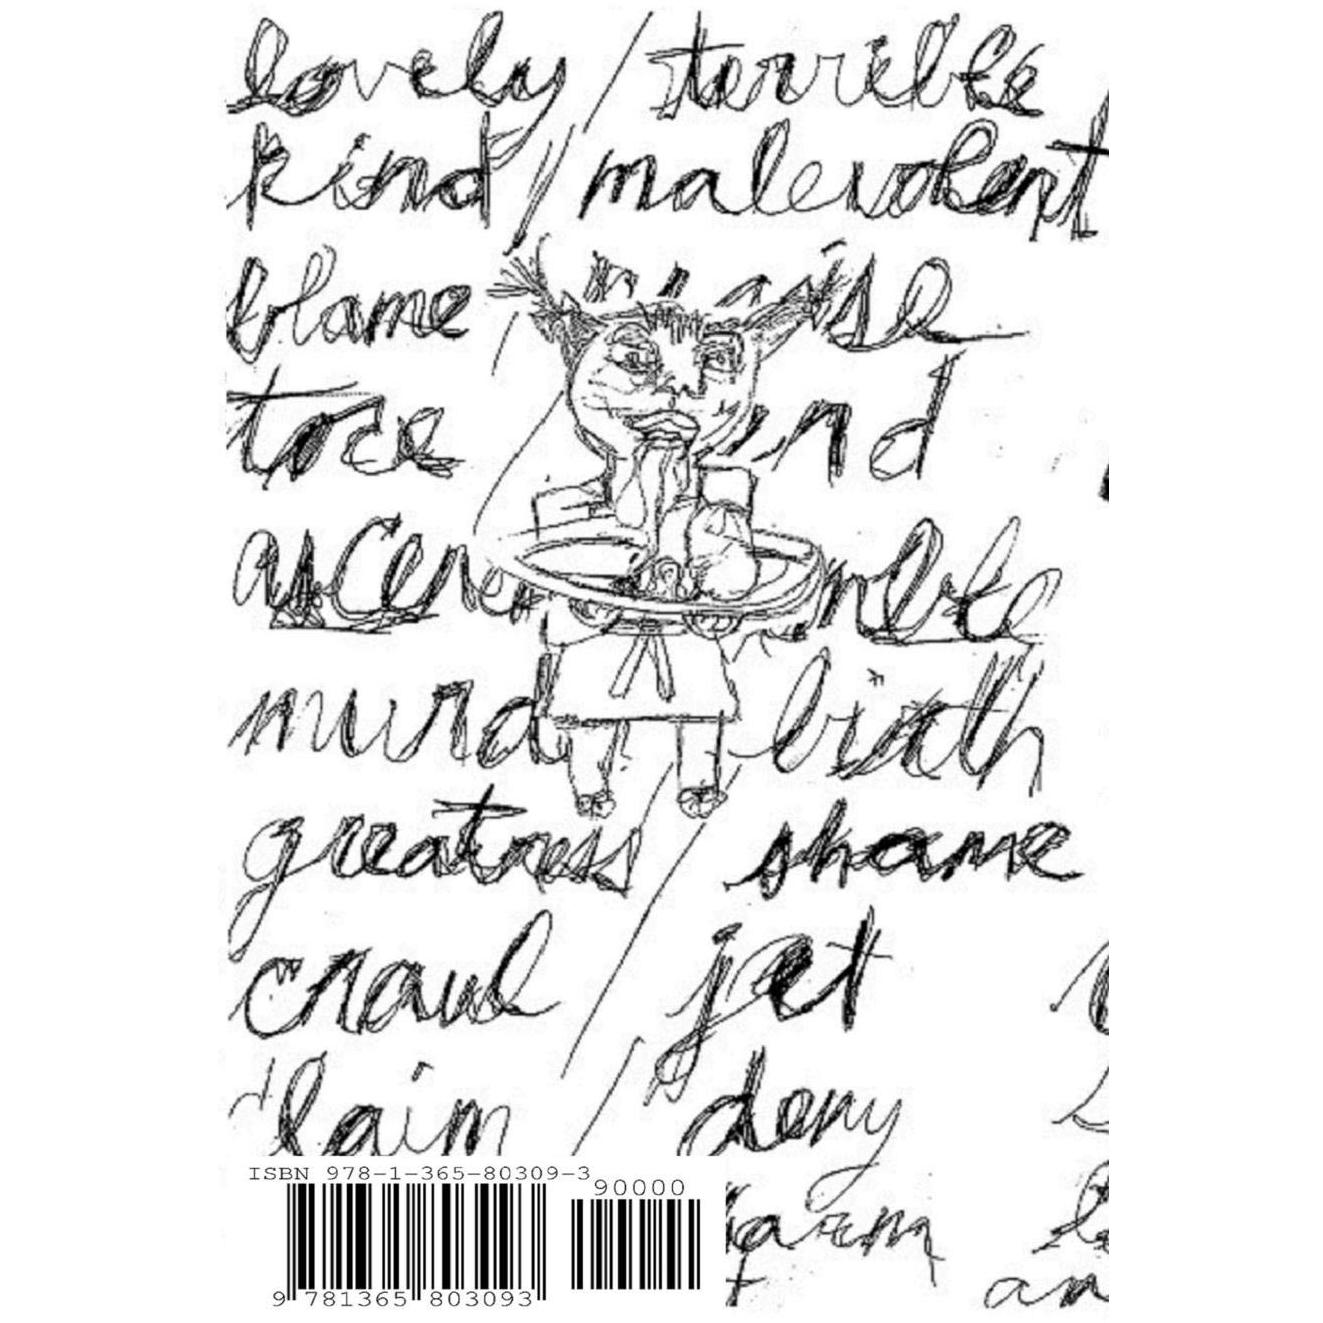 lovely / terrible
kind / malevolent
blame / praise
end
murd birth
greatness / shame
crawl / jet
claim / deny
ISBN 978-1-365-80309-3
90000
9 781365 803093